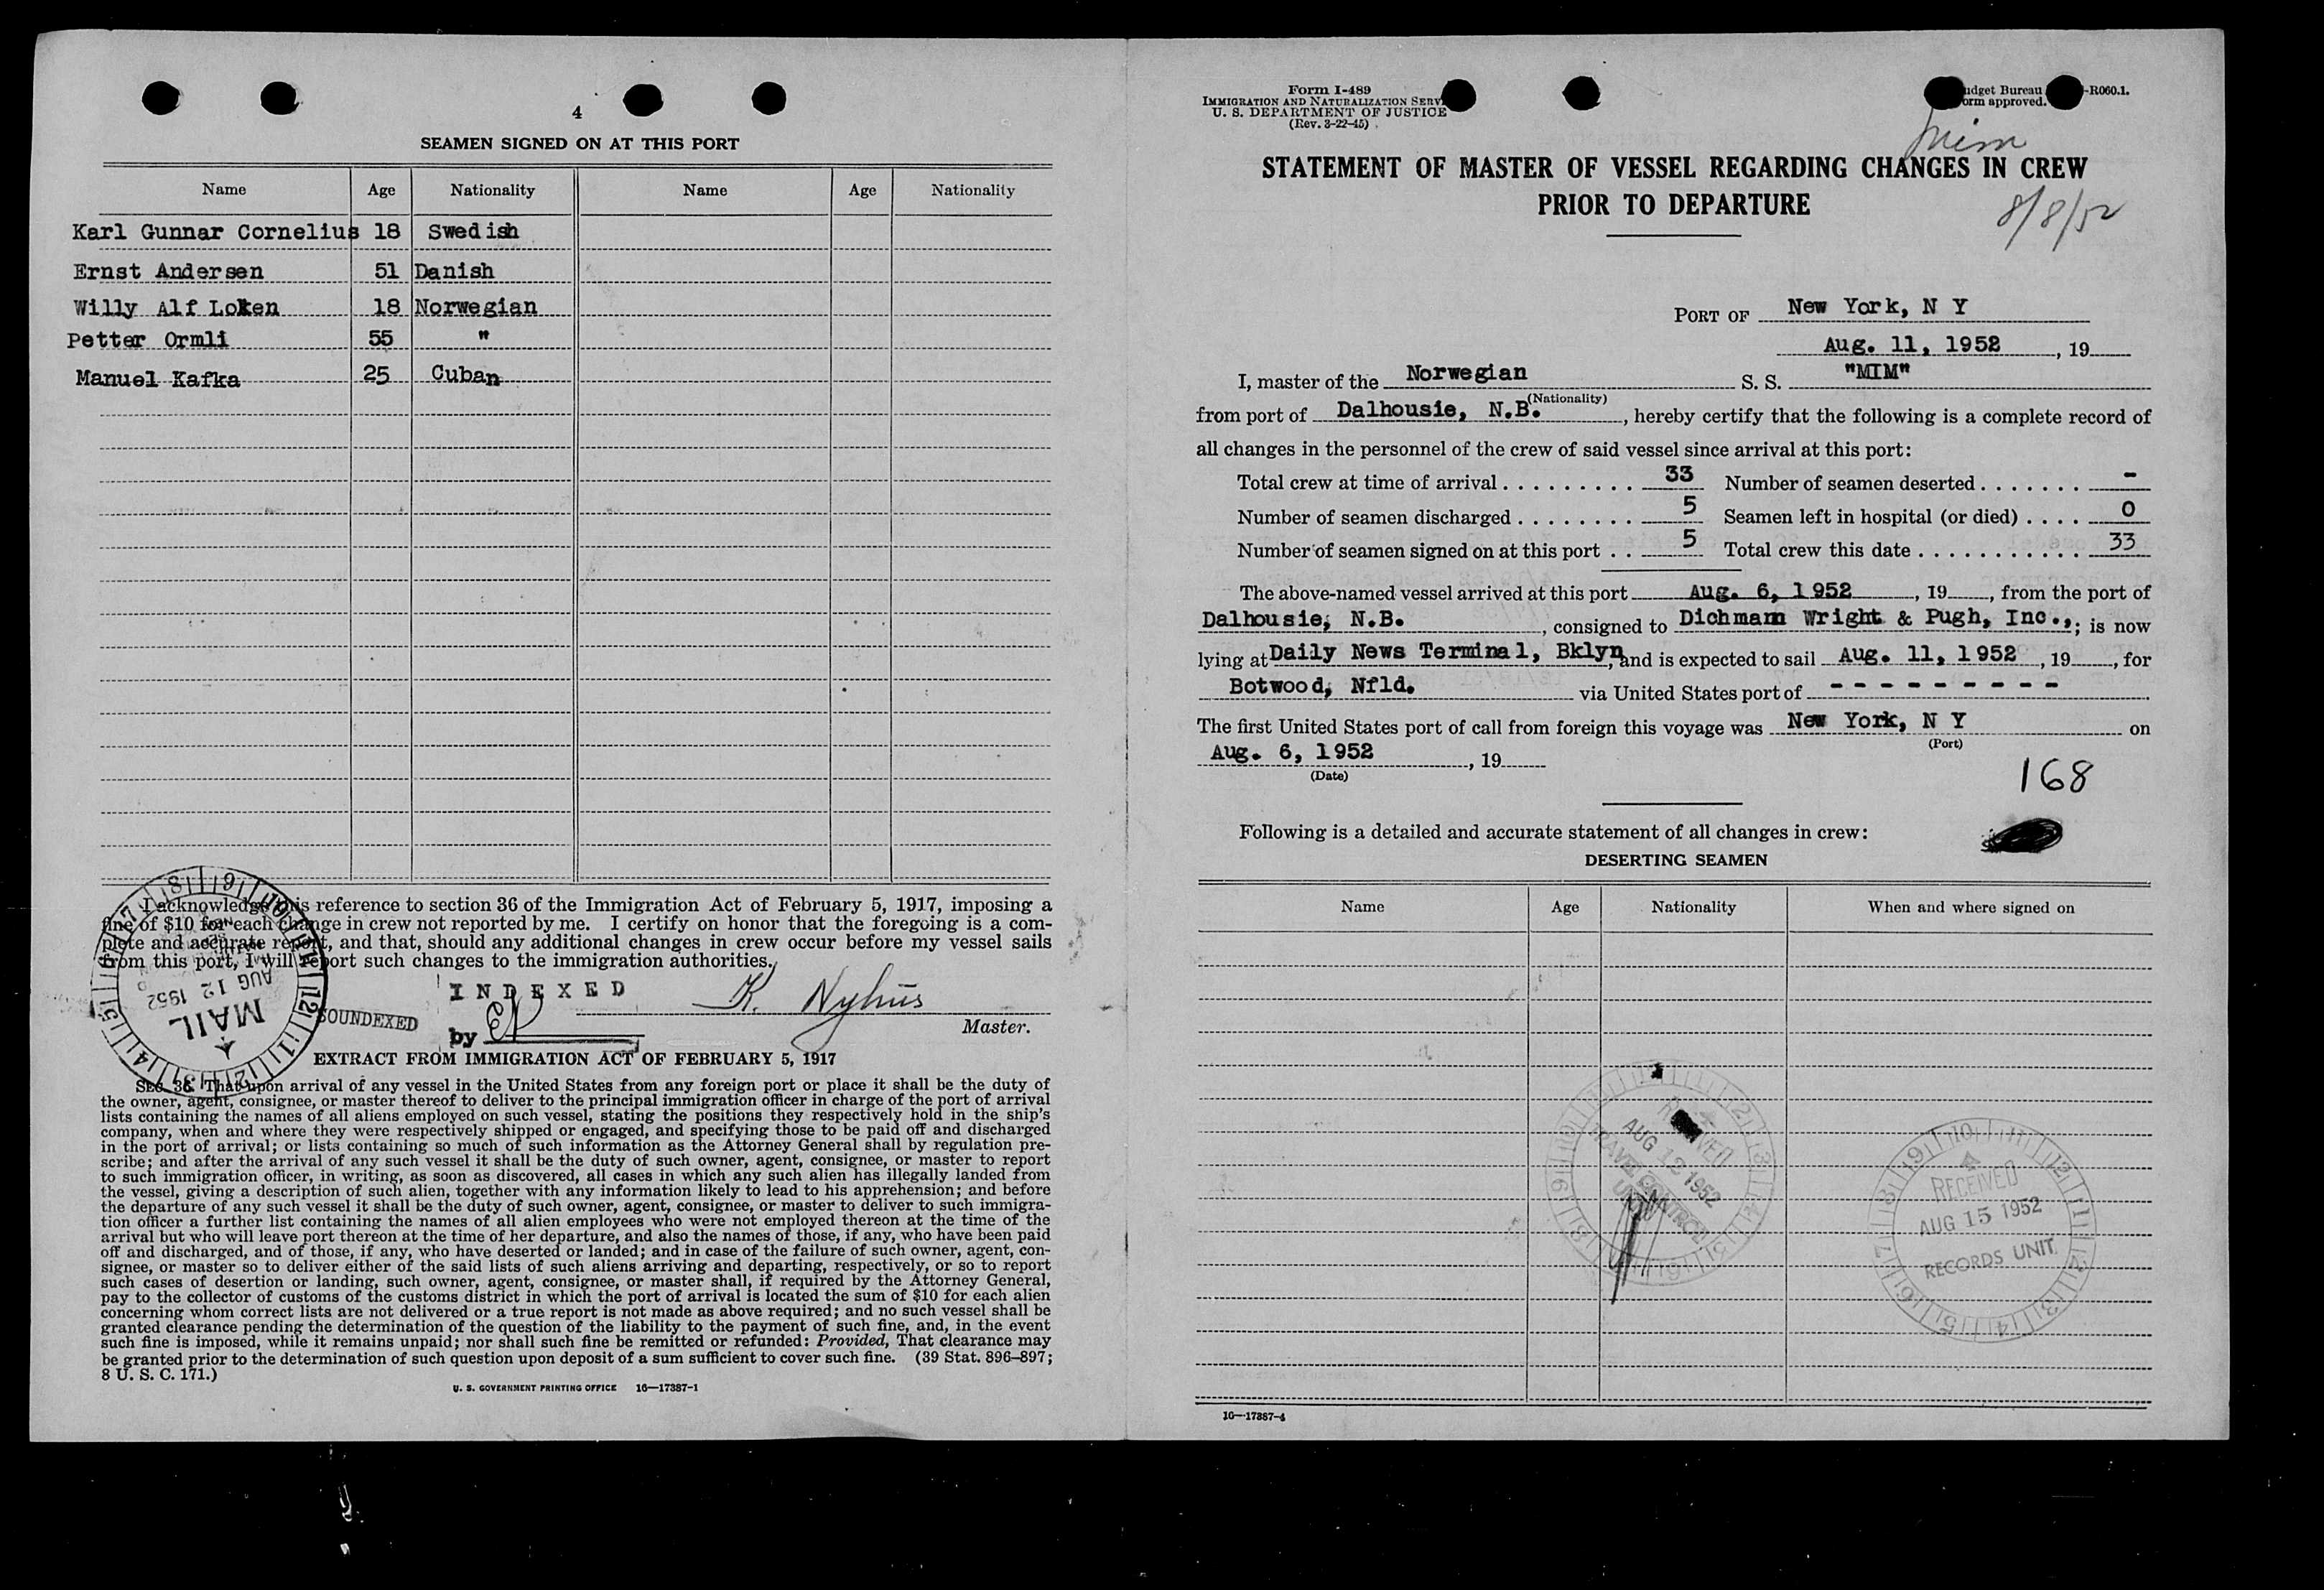 4
SEAMEN SIGNED ON AT THIS PORT
Name Age Nationality Name Age Nationality
Karl Gunnar Cornelius 18 Swedish
Ernst Andersen 51 Danish
Willy Alf Loken 18 Norwegian
Petter Ormli 55 "
Manuel Kafka 25 Cuban
I acknowledge this reference to section 36 of the Immigration Act of February 5, 1917, imposing a
fine of $10 for each change in crew not reported by me. I certify on honor that the foregoing is a com-
plete and accurate report, and that, should any additional changes in crew occur before my vessel sails
from this port, I will report such changes to the immigration authorities.
AUG 12 1952
MAIL
SOUNDEXED
INDEXED
by
K. Nyhus
Master.
EXTRACT FROM IMMIGRATION ACT OF FEBRUARY 5, 1917
SEC. 36. That upon arrival of any vessel in the United States from any foreign port or place it shall be the duty of
the owner, agent, consignee, or master thereof to deliver to the principal immigration officer in charge of the port of arrival
lists containing the names of all aliens employed on such vessel, stating the positions they respectively hold in the ship's
company, when and where they were respectively shipped or engaged, and specifying those to be paid off and discharged
in the port of arrival; or lists containing so much of such information as the Attorney General shall by regulation pre-
scribe; and after the arrival of any such vessel it shall be the duty of such owner, agent, consignee, or master to report
to such immigration officer, in writing, as soon as discovered, all cases in which any such alien has illegally landed from
the vessel, giving a description of such alien, together with any information likely to lead to his apprehension; and before
the departure of any such vessel it shall be the duty of such owner, agent, consignee, or master to deliver to such immigra-
tion officer a further list containing the names of all alien employees who were not employed thereon at the time of the
arrival but who will leave port thereon at the time of her departure, and also the names of those, if any, who have been paid
off and discharged, and of those, if any, who have deserted or landed; and in case of the failure of such owner, agent, con-
signee, or master so to deliver either of the said lists of such aliens arriving and departing, respectively, or so to report
such cases of desertion or landing, such owner, agent, consignee, or master shall, if required by the Attorney General,
pay to the collector of customs of the customs district in which the port of arrival is located the sum of $10 for each alien
concerning whom correct lists are not delivered or a true report is not made as above required; and no such vessel shall be
granted clearance pending the determination of the question of the liability to the payment of such fine, and, in the event
such fine is imposed, while it remains unpaid; nor shall such fine be remitted or refunded: Provided, That clearance may
be granted prior to the determination of such question upon deposit of a sum sufficient to cover such fine. (39 Stat. 896–897;
8 U. S. C. 171.)
U. S. GOVERNMENT PRINTING OFFICE 16—17387-1
Form I-489
IMMIGRATION AND NATURALIZATION SERVI
U. S. DEPARTMENT OF JUSTICE
(Rev. 3-22-45)
udget Bureau -R060.1.
orm approved.
Mim
STATEMENT OF MASTER OF VESSEL REGARDING CHANGES IN CREW
PRIOR TO DEPARTURE
8/8/52
PORT OF New York, N Y
Aug. 11, 1952, 19
I, master of the Norwegian S. S. "MIM"
(Nationality)
from port of Dalhousie, N.B., hereby certify that the following is a complete record of
all changes in the personnel of the crew of said vessel since arrival at this port:
Total crew at time of arrival 33 Number of seamen deserted -
Number of seamen discharged 5 Seamen left in hospital (or died) 0
Number of seamen signed on at this port 5 Total crew this date 33
The above-named vessel arrived at this port Aug. 6, 1952, 19, from the port of
Dalhousie, N.B., consigned to Dichmam Wright & Pugh, Inc.,; is now
lying at Daily News Terminal, Bklyn, and is expected to sail Aug. 11, 1952, 19, for
Botwood, Nfld. via United States port of - - - - - - - - -
The first United States port of call from foreign this voyage was New York, N Y on
(Port)
Aug. 6, 1952, 19
(Date)
168
Following is a detailed and accurate statement of all changes in crew:
DESERTING SEAMEN
Name Age Nationality When and where signed on
RECEIVED
AUG 13 1952
TRAVEL CONTROL
UNIT
RECEIVED
AUG 15 1952
RECORDS UNIT
16—17387-4